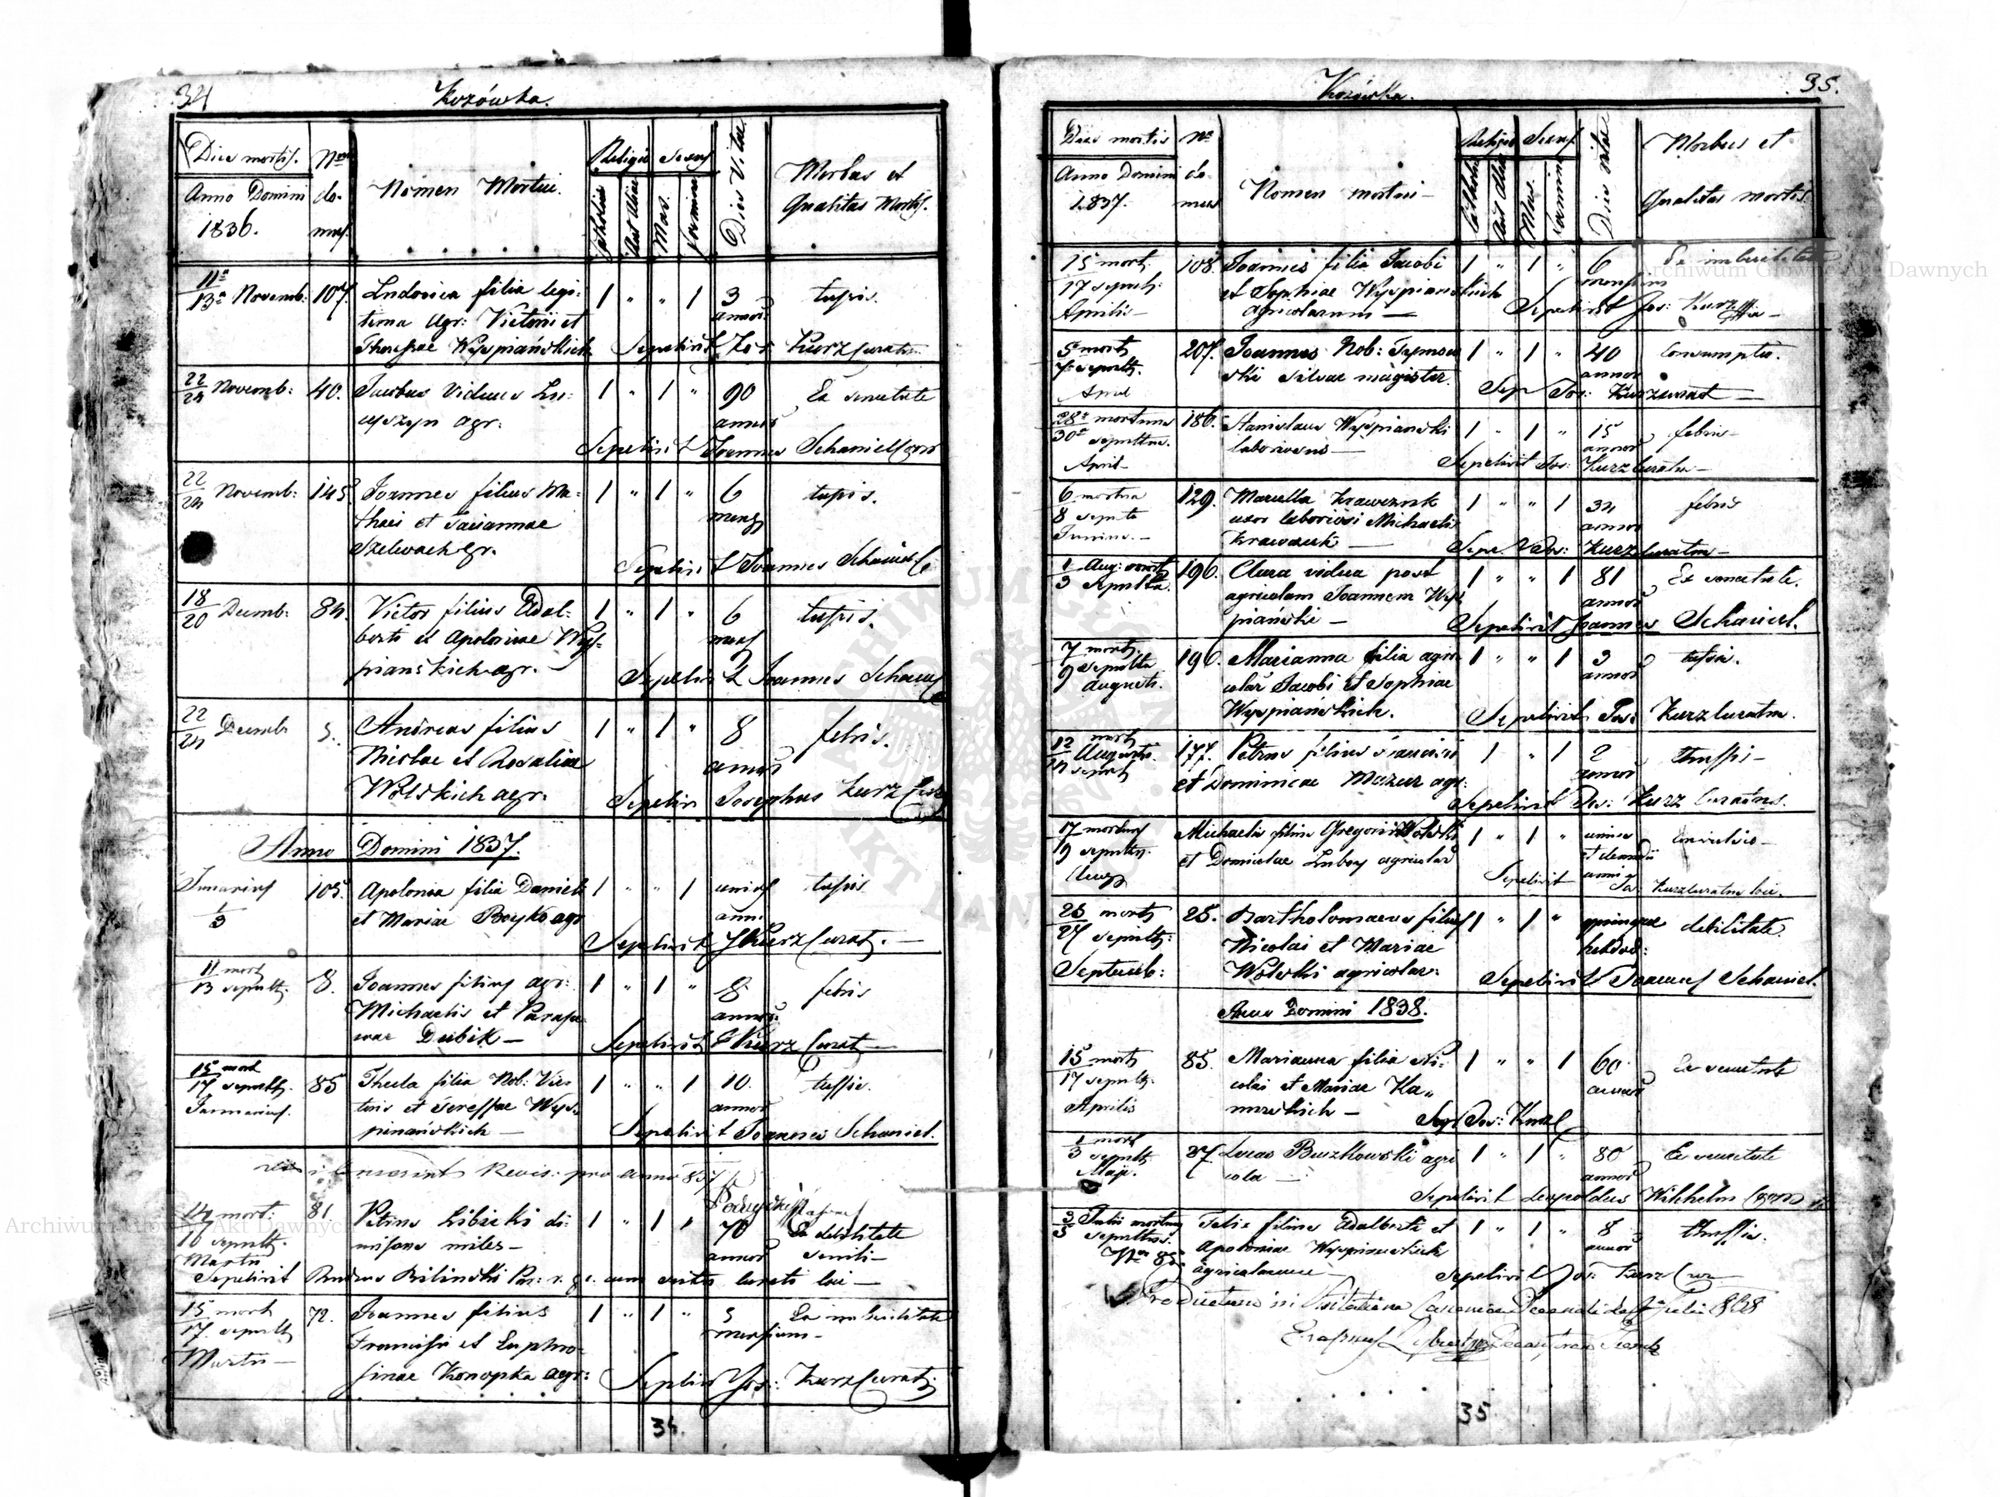 34
Kozówka.
Dies mortis.
Nrus
do-
mus
Nomen Mortui.
Religio
Sexus
Dies Vitae
Morbus et
Qualitas Mortis.
Anno Domini
1836.
Catholica
Aut Alia
Mas.
Foemina
11a
13a Novemb: 107 Ludovica filia legi- 1 " " 1 3 tussis.
tima agr: Victorii et annor:
Theresae Wyspiańskich Sepelivit Jos Kurz Curatus
22
24 Novemb: 40. Jacobus Viduus 1 " 1 " 90 Ex senectute
agr. annor
Sepelivit Joannes Schaniel
22
24 Novemb: 145 Joannes filius Ma- 1 " 1 " 6 tussis.
thaei et Mariannae mens
Szelwach agr. Sepelivit Joannes Schaniel
18
20 Decemb: 84. Victor filius Adal- 1 " 1 " 6 tussis.
berti et Apoloniae Wys- mens
pianskich agr. Sepelivit Joannes Schaniel
22
24 Decemb 5. Andreas filius 1 " 1 " 8 febris.
Nicolae et Rosaliae annor
Wolskich agr. Sepelivi Josephus Kurz
Anno Domini 1837.
Januarius 105. Apolonia filia Daniel 1 " " 1 unius tussis
1
3 et Mariae Boyko agr anni
Sepelivit J Kurz Curat.
11 mort
13 sepult. 8. Joannes filius agr: 1 " 1 " 8 febris
Michaelis et Paras- annor:
Dubik Sepelivit J Kurz Curat
15 mort
17 sepult. 85 Thecla filia Nob: Vic- 1 " " 1 10. tussis.
Januarius. toris et Teressae Wys- annor
pianskich Sepelivit Joannes Schaniel.
Revis: pro anno 837
14 mort: 81 Petrus Libicki di- 1 " 1 " 70 Ex debilitate
16 sepult. misus miles annor senili
Martii
Sepelivit Andreas Bilinski Par: r. g. loci
15 mort 72. Joannes filius 1 " 1 " 5 Ex imbecilitate
17. sepult Francisci et Euphro- mensium
Martii sinae Konopka agr: Sepelivit Jos: Kurz Curat.
34.
Kozówka.
35.
Dies mortis
Nrus
do-
mus
Nomen mortui
Religio
Sexus
Dies vitae
Morbus et
Qualitas mortis.
Anno Domini
1837.
Catholica
Aut Alia
Mas.
Foemina
15 mort. 108. Joannes filia Jacobi 1 " 1 " 6 Ex imbecilitate
17 sepult. et Sophiae Wyspianskich mensium
Aprilis agricolarum Sepelivit Jos: Kurz
5 mort 207. Joannes Nob: 1 " 1 " 40 Consumptio.
7 sepult. silvae magister. annor
April Sep Jos: Kurz
28a mortuus 186. Stanislaus Wyspianski 1 " 1 " 15 febris
30a sepultus laboriosus annor
April Sepelivit Jos: Kurz Curatus
6 mortua 129. Marcella Krawczuk 1 " " 1 34 febris
8 sepulta uxor laboriosi Michaelis annor
Krawczuk Kurz Curatus
1 Aug: mort
3 Sepulta. 196. Clara vidua post 1 " " 1 81 Ex senectute.
agricolam Joannem Wys- annor
piański Sepelivit Joannes Schaniel.
7 mort. 196. Marianna filia agri- 1 " " 1 3 tussis.
9 sepulta colar Jacobi et Sophiae annor
Augusti. Wyspianskich. Sepelivit Jos: Kurz Curatus.
12 mort
14 sepult Augusti 177. Petrus filius 1 " 1 2 thussis
et Dominicae Mazur agr: annor
Sepelivit Jos: Kurz Curatus.
17 mortuus Michaelis filius Gregorii Wolski 1 " 1 " unius convulsio
9 sepultus. et Domicelae Lubey agricolar anni
Aug Sepelivit Jos: Kurz Curatus loci.
25 mort 25. Bartholomaeus filius 1 " 1 " quinque debilitate.
27 sepult: Nicolai et Mariae hebdod:
Septemb: Wolski agricolar. Sepelivit Joannes Schaniel.
Anno Domini 1838.
15 mort 85. Marianna filia Ni- 1 " " 1 60 Ex senectute
17 sepult. colai et Mariae Ka- annor
Aprilis Sep Jos: Kurz
1 mort
3 sepult 37. Lucas Buczkowski agri 1 " 1 " 80 Ex senectute
Maji. cola annor
Sepelivit Leopoldus Wilhelm
3 Julii mortuus Felix filius Adalberti et 1 " 1 " 8 thussis.
5 sepultus. Apoloniae Wyspianskich annor
Nro 85 agricolarum Sepelivit Jos: Kurz Cur
Productum in Visitatione Canonica Decanali Julii 1838
35
Archiwum Główne Akt Dawnych
Archiwum Główne Akt Dawnych
ARCHIWUM GŁÓWNE AKT DAWNYCH